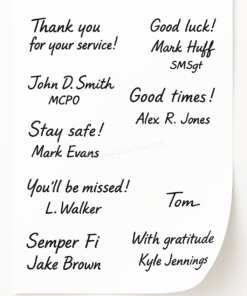 Thank you
for your service!
Good luck!
Mark Huff
SMSgt
John D. Smith
MCPO
Good times!
Alex R. Jones
Stay safe!
Mark Evans
You'll be missed!
L. Walker
Tom
Semper Fi
Jake Brown
With gratitude
Kyle Jennings